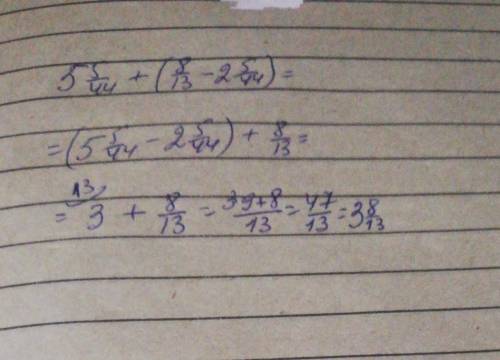 5 5/44 + (8/13 - 2 5/44) =
= (5 5/44 - 2 5/44) + 8/13 =
= 3 13) + 8/13 = 39+8/13 = 47/13 = 3 8/13